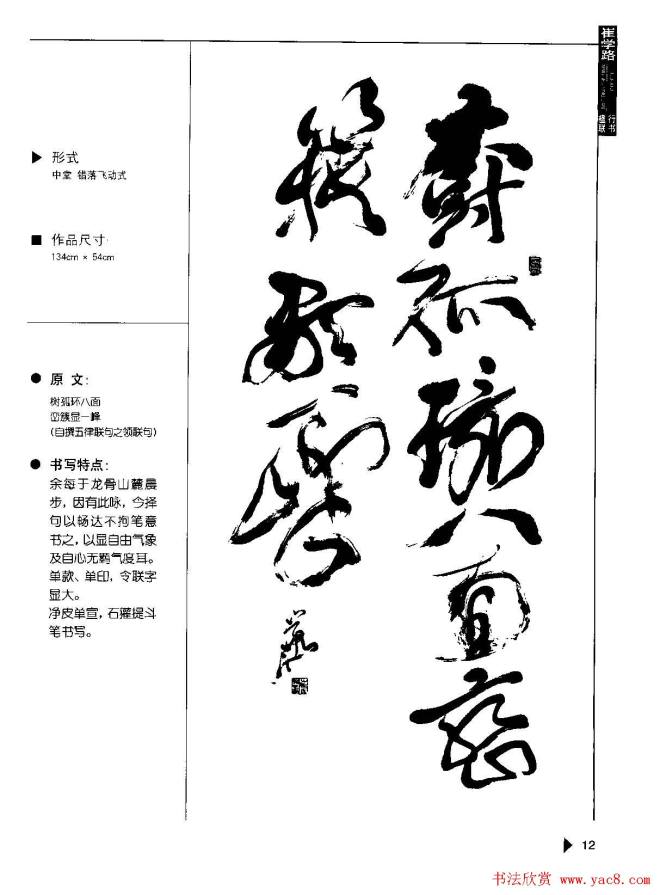 崔学路
行书
楹联
▶ 形式
中堂 错落飞动式
■ 作品尺寸:
134cm × 54cm
● 原 文:
树孤环八面
峦簇显一峰
(自撰五律联句之颔联句)
● 书写特点:
余每于龙骨山麓晨
步，因有此咏，今择
句以畅达不拘笔意
书之，以显自由气象
及自心无羁气度耳。
单款、单印，令联字
显大。
净皮单宣，石獾提斗
笔书写。
樹孤環八面巒
簇顯一峰
▶ 12
书法欣赏 www.yac8.com